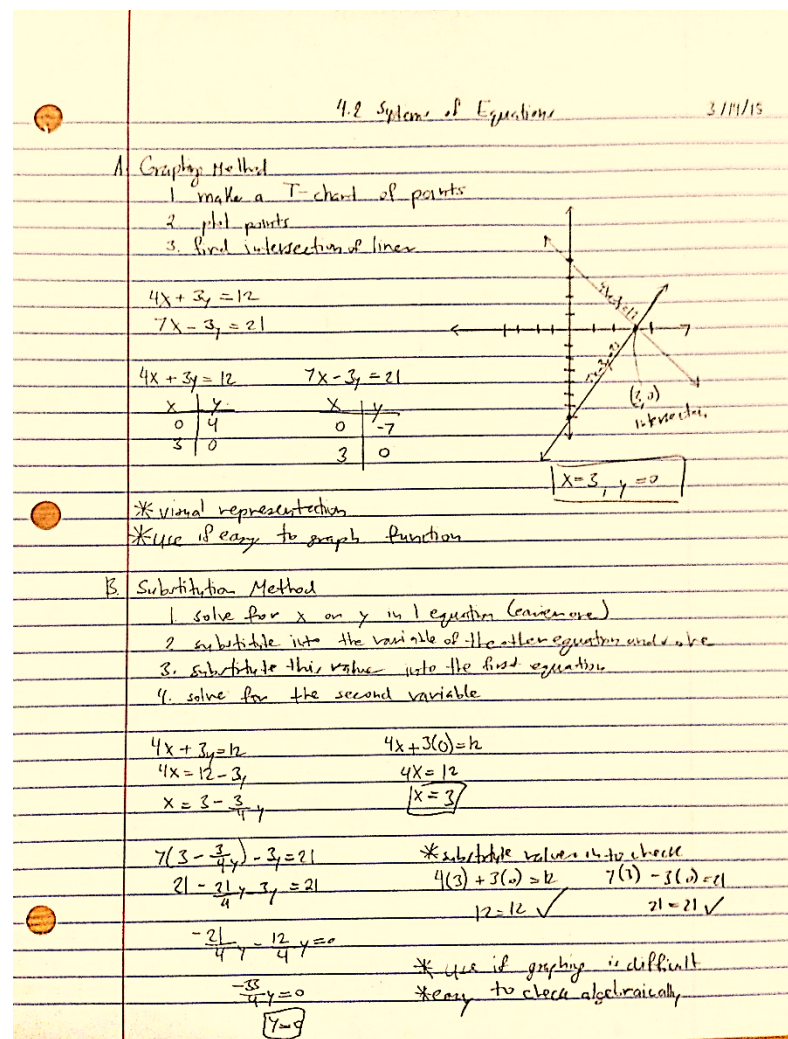 4.2 Systems of Equations 3/14/15
A. Graphing Method
1 make a T-chart of points
2 plot points
3. find intersection of lines
4x + 3y = 12
7x - 3y = 21
4x + 3y = 12 7x - 3y = 21
x | y x | y
0 | 4 0 | -7
3 | 0 3 | 0
4x+3y=12
7x-3y=21
(3,0)
intersection
x=3, y=0
* visual representation
* use if easy to graph function
B. Substitution Method
1. solve for x or y in 1 equation (easier one)
2 substitute into the variable of the other equation and solve
3. substitute this value into the first equation
4. solve for the second variable
4x + 3y = 12 4x + 3(0) = 12
4x = 12 - 3y 4x = 12
x = 3 - 3/4 y x = 3
7(3 - 3/4 y) - 3y = 21 * substitute values in to check
21 - 21/4 y - 3y = 21 4(3) + 3(0) = 12 7(3) - 3(0) = 21
12 = 12 ✓ 21 = 21 ✓
-21/4 y - 12/4 y = 0
* use if graphing is difficult
-33/4 y = 0 * easy to check algebraically
y=0